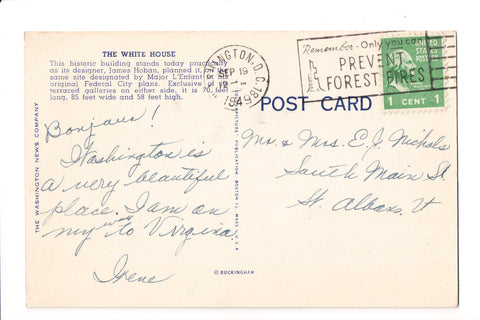 THE WHITE HOUSE
This historic building stands today
as its designer, James Hoban, planned it,
same site designated by Major L'Enfant in his
original Federal City plans. Exclusive of
terraced galleries on either side, it is 170 feet
long, 85 feet wide and 58 feet high.
Bonjour!
Washington is
a very beautiful
place. I am on
my way to Virginia
Irene
THE WASHINGTON NEWS COMPANY
© BUCKINGHAM
SEP 19
1949
Remember - Only you can
PREVENT
FOREST FIRES
1 CENT 1
POST CARD
Mr. & Mrs. E. J. Nichols
South Main St.
St. Albans, Vt